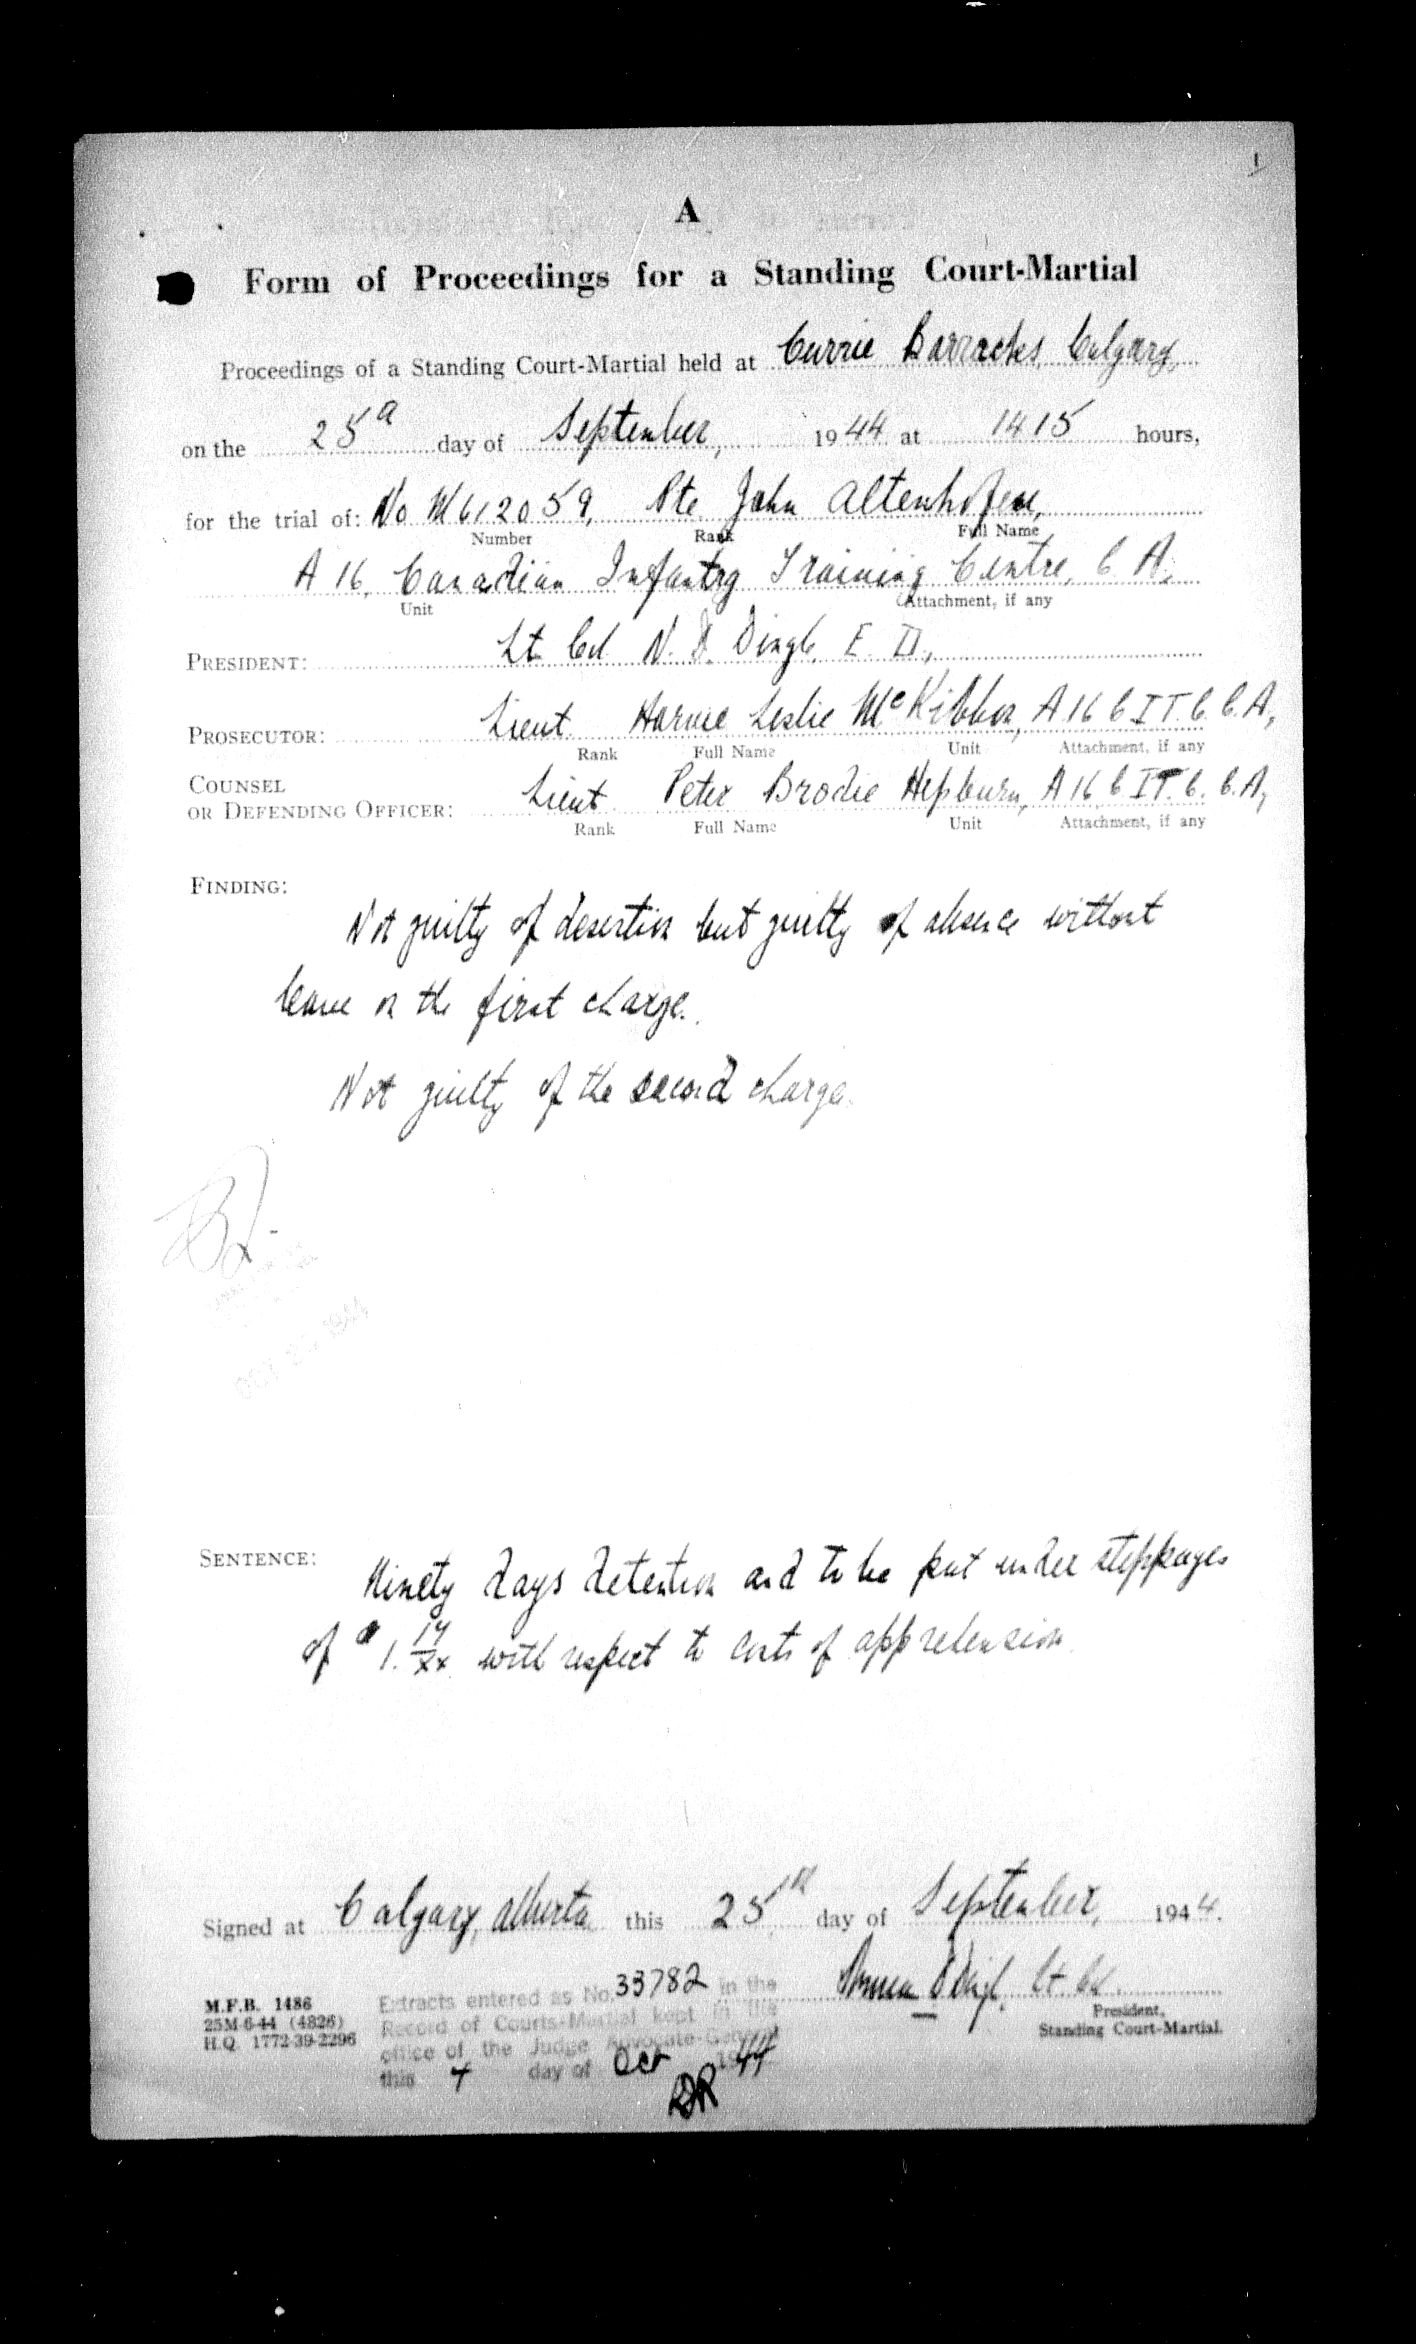 1
A
Form of Proceedings for a Standing Court-Martial
Proceedings of a Standing Court-Martial held at Currie Barracks, Calgary,
on the 25 day of September, 1944 at 1415 hours,
for the trial of: No M612059, Pte John Altenhofen,
Number Rank Full Name
A 16, Canadian Infantry Training Centre, C A,
Unit Attachment, if any
PRESIDENT: Lt Col N. D. Dingle, E. D.,
PROSECUTOR: Lieut Harvie Leslie McKibbon, A 16 C I T. C. C. A,
Rank Full Name Unit Attachment, if any
COUNSEL
OR DEFENDING OFFICER: Lieut Peter Brodie Hepburn, A 16 C. I T. C. C. A,
Rank Full Name Unit Attachment, if any
FINDING:
Not guilty of desertion but guilty of absence without
leave on the first charge.
Not guilty of the second charge.
OCT 1944
SENTENCE: Ninety days detention and to be put under stoppages
of $1. with respect to costs of apprehension.
Signed at Calgary, Alberta this 25th day of September, 1944.
Lt Col.
President,
Standing Court-Martial.
M.F.B. 1486
25M-6-44 (4826)
H.Q. 1772-39-2296
Extracts entered as No. 33782 in the
Record of Courts-Martial kept in the
office of the Judge Advocate-General
this 4 day of Oct 1944